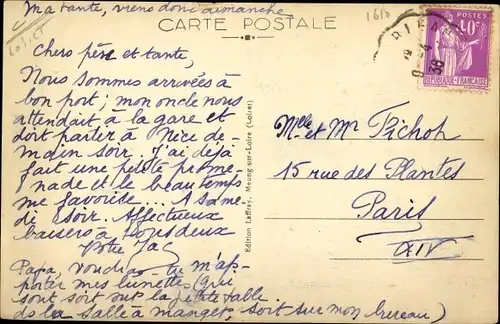 Ma tante, viens donc dimanche
CARTE POSTALE
LOIRET
1610
Chers père et tante,
Nous sommes arrivées à
bon port ; mon oncle nous
attendait à la gare et
doit partir à Nice de-
main soir. J'ai déjà
fait une petite prome-
nade et le beau temps
me favorise... A same-
di soir. Affectueux
baisers à tous deux
Votre Jac
Papa, voudras-tu m'ap-
porter mes lunettes (qui
sont soit sur la petite table
ds la salle à manger, soit sur mon bureau)
Edition Laffray, Meung-sur-Loire (Loiret)
POSTES
40c
REPUBLIQUE FRANÇAISE
38
Mlle et Mr Pichot
15 rue des Plantes
Paris
XIV